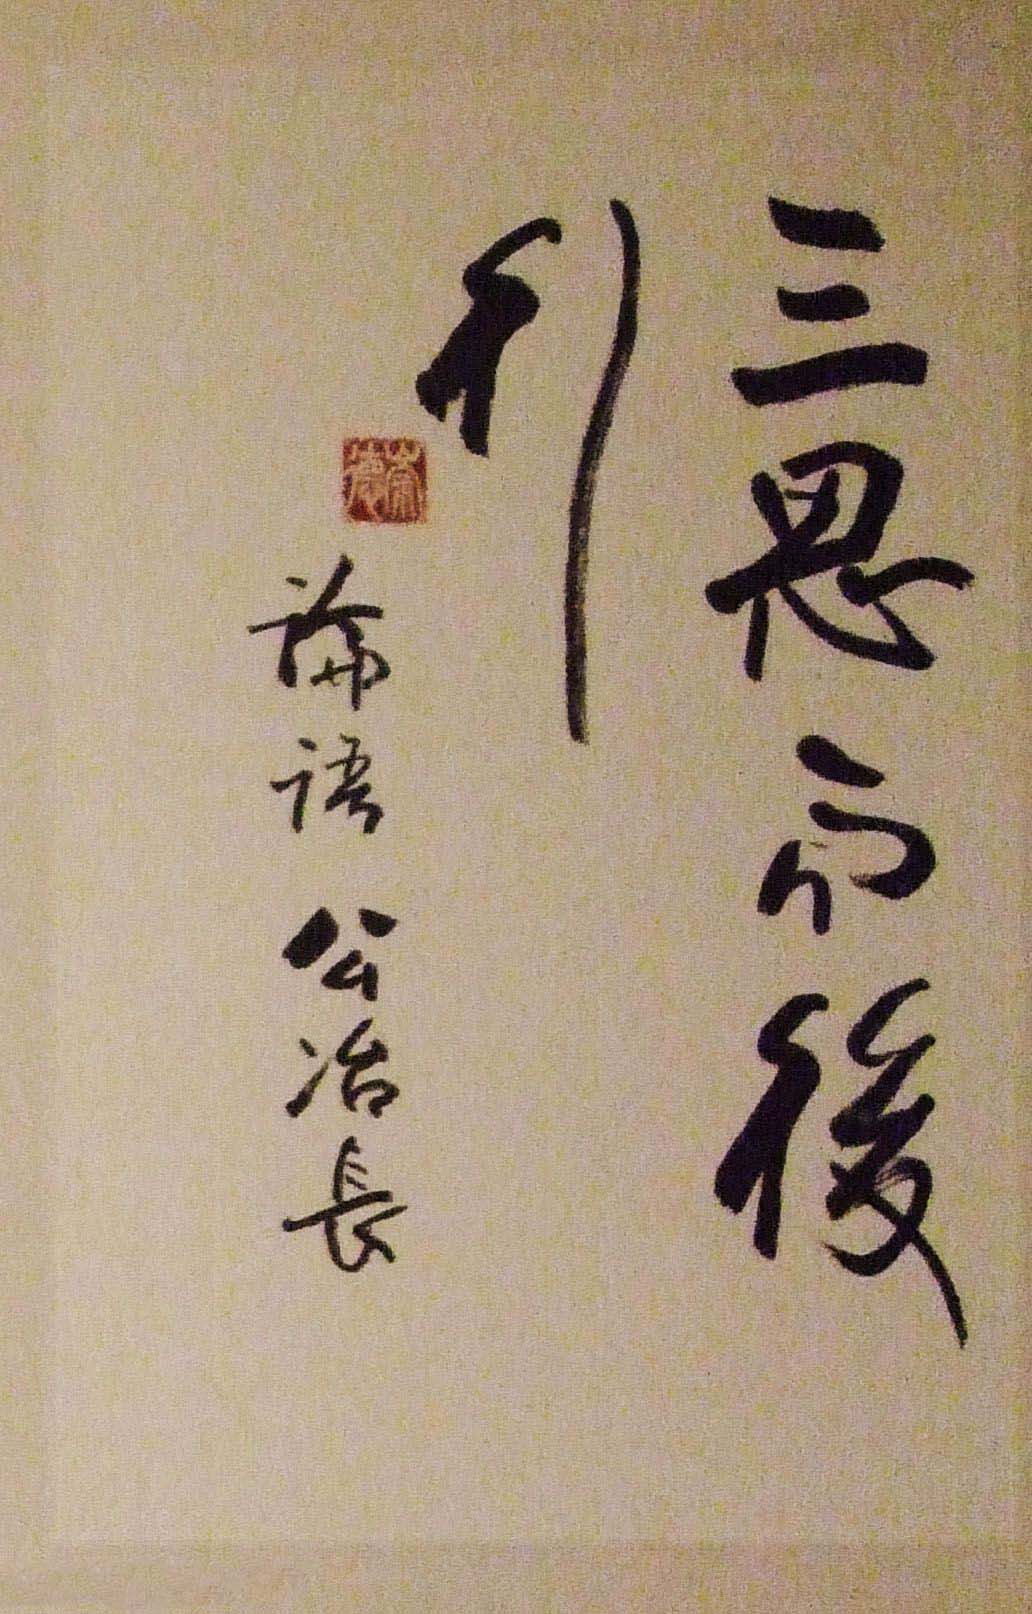 三思而後
行
論語 公冶長